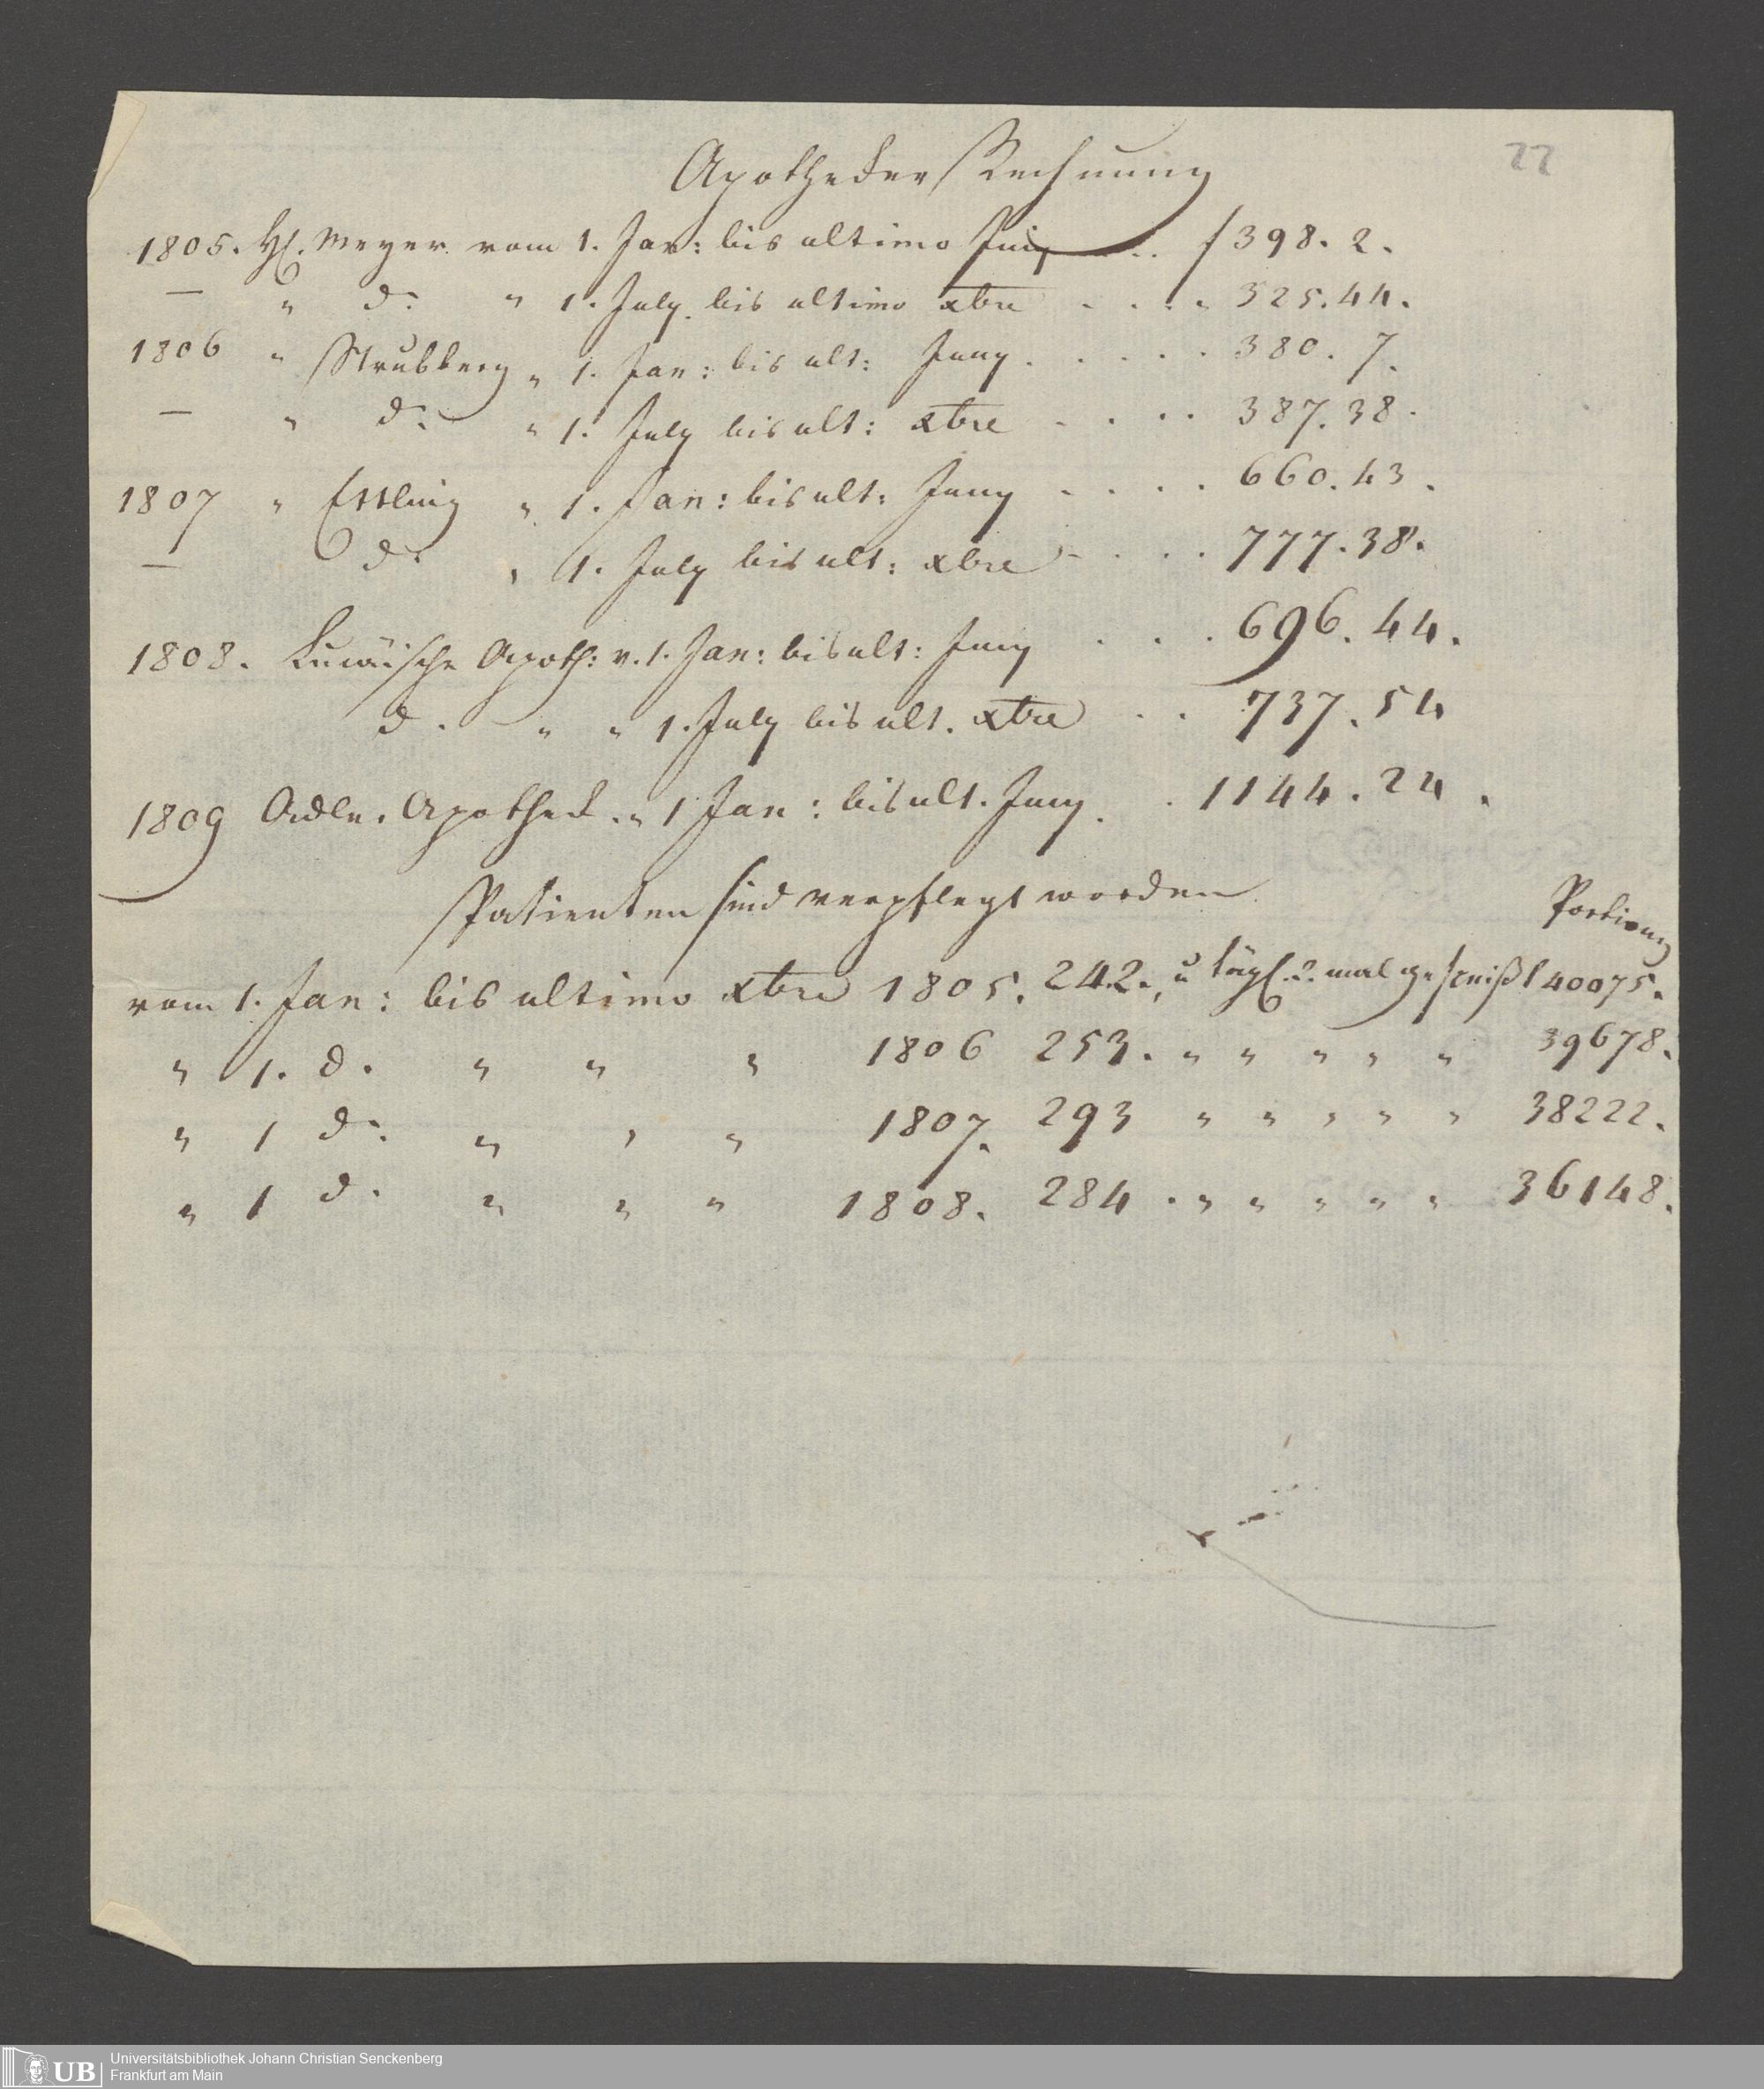 22
Apotheker Rechnung
1805. H. Meyer vom 1. Jan: bis ultimo Juny . . . f 398. 2.
— " do. " 1. July bis ultimo xbre . . . . 325. 44.
1806 " Strubberg " 1. Jan: bis ult: Juny . . . . . 380. 7.
— " do. " 1. July bis ult: xbre . . . . 387. 38.
1807 " Ettling " 1. Jan: bis ult: Juny . . . . 660. 43.
— do. " 1. July bis ult: xbre . . . . 777. 38.
1808. Apoth: v. 1. Jan: bis ult: Juny . . . 696. 44.
do. " " 1. July bis ult. xbre . . 737. 54
1809 Adler Apotheck. " 1 Jan: bis ult. Juny . . 1144. 24.
Patienten sind verpflegt worden
Portionen
vom 1. Jan: bis ultimo xbre 1805. 242., u tägl. 2 mal gespeißt 40075.
" 1. do. " " " 1806 253. " " " " " 39678.
" 1 do. " " " 1807. 293 " " " " " 38222.
" 1 do. " " " 1808. 284. " " " " " 36148.
UB
Universitätsbibliothek Johann Christian Senckenberg
Frankfurt am Main